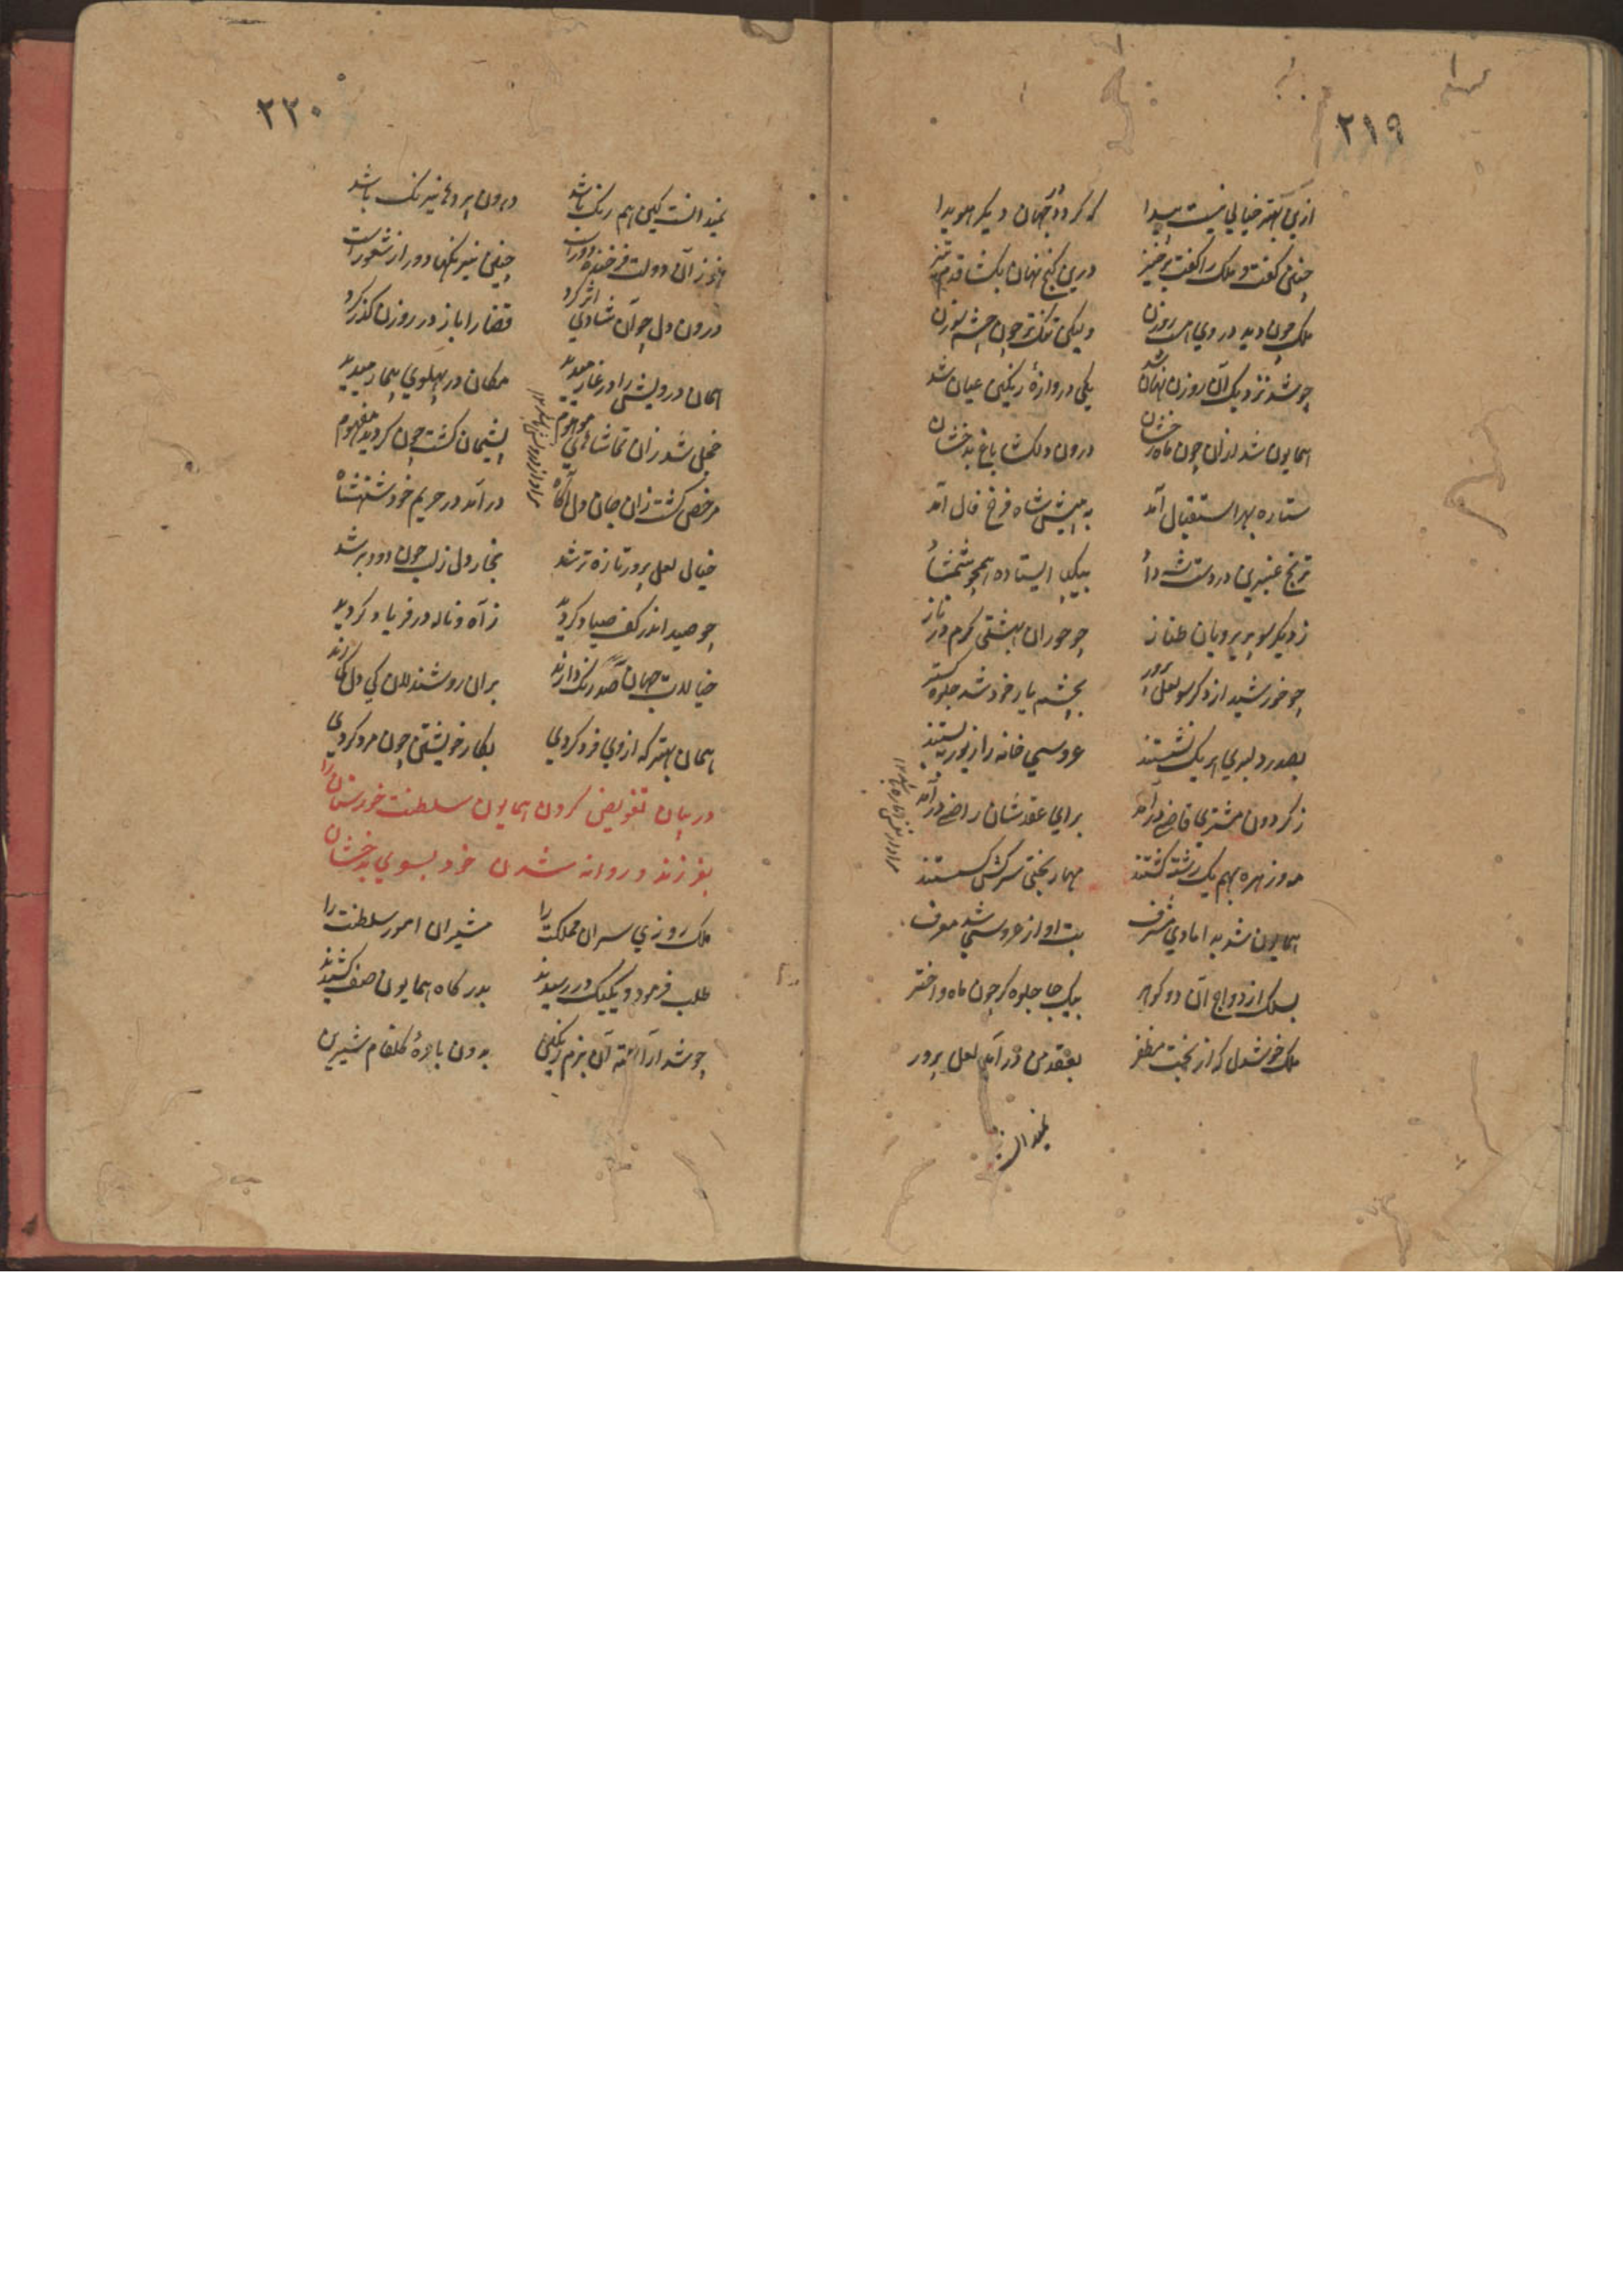 ۲۱۹
ازین بهتر خیالی نیست پیدا که گردد جهان دیگر هویدا
چنین گفت و ملک را گفت برخیز درین کنج نهان بکشا قدم تیز
ملک چون دید در وی هست روزن ولیکن تنک تر چون چشم سوزن
چو شد نزدیک آن روزن نهان شد یکی دروازهٔ رنکین عیان شد
همایون شد از آن چون ماه رخشان درون دلکشا باغ بدخشان
ستاره بهر استقبال آمد به پیش شاه فرخ فال آمد
ترنج عنبری در دست شه داد بیکپا ایستاده همچو شمشاد
ز دیکر سو پریرویان طناز چو حوران بهشتی کرم در ناز
چو خورشید از دکر سو لعل پرور بچشم یار خود شد جلوه کستر
بصدر دلبری هر یک نشستند عروسی خانه را زیور ببستند
ز کردون مشتری قاضی درآمد برای عقد شان راضی درآمد
مه و زهره بهم یک رشته کشتند مهار بختی سرکش کسستند
همایون شد بدامادی مشرف بت او از عروسی شد معرف
بسلک ازدواج آن دو کوهر بیک جا جلوه کر چون ماه و اختر
ملک خوشدل که از بخت مظفر بعقد من درآمد لعل پرور
نمیدانست
۲۲۰
نمیدانست کین هم رنک باشد درون پردها نیرنک باشد
هنوز آن دولت فرخنده دور است چنین نیرنکها دور از شعور است
درون دل چو آن شادی اثر کرد قضا را باز در روزن کذر کرد
همان درویش را در غار میدید مکان در پهلوی بیمار میدید
خجل شد زان تماشاهای موهوم پشیمان کشت چون کردید مفهوم
مرخص کشت زان جان دل آکاه درآمد در حریم خود شهنشاه
خیال لعل پرور تازه تر شد بخار دل ز لب چون دود بر شد
چو صید اندر کف صیاد کردید ز آه و ناله در فریاد کردید
خیالات جهان صد رنک دارند بران روشندلان کی دل کمارند
همان بهتر که از وی فرد کردی بکار خویشتن چون مرد کردی
در بیان تفویض کردن همایون سلطنت خورستان را
بفرزند و روانه شدن خود بسوی بدخشان
ملک روزی سران مملکت را مشیران امور سلطنت را
طلب فرمود و یکیک در رسیدند بدرکاه همایون صف کشیدند
چو شد آراسته آن بزم رنکین بدون بادهٔ کلفام شیرین